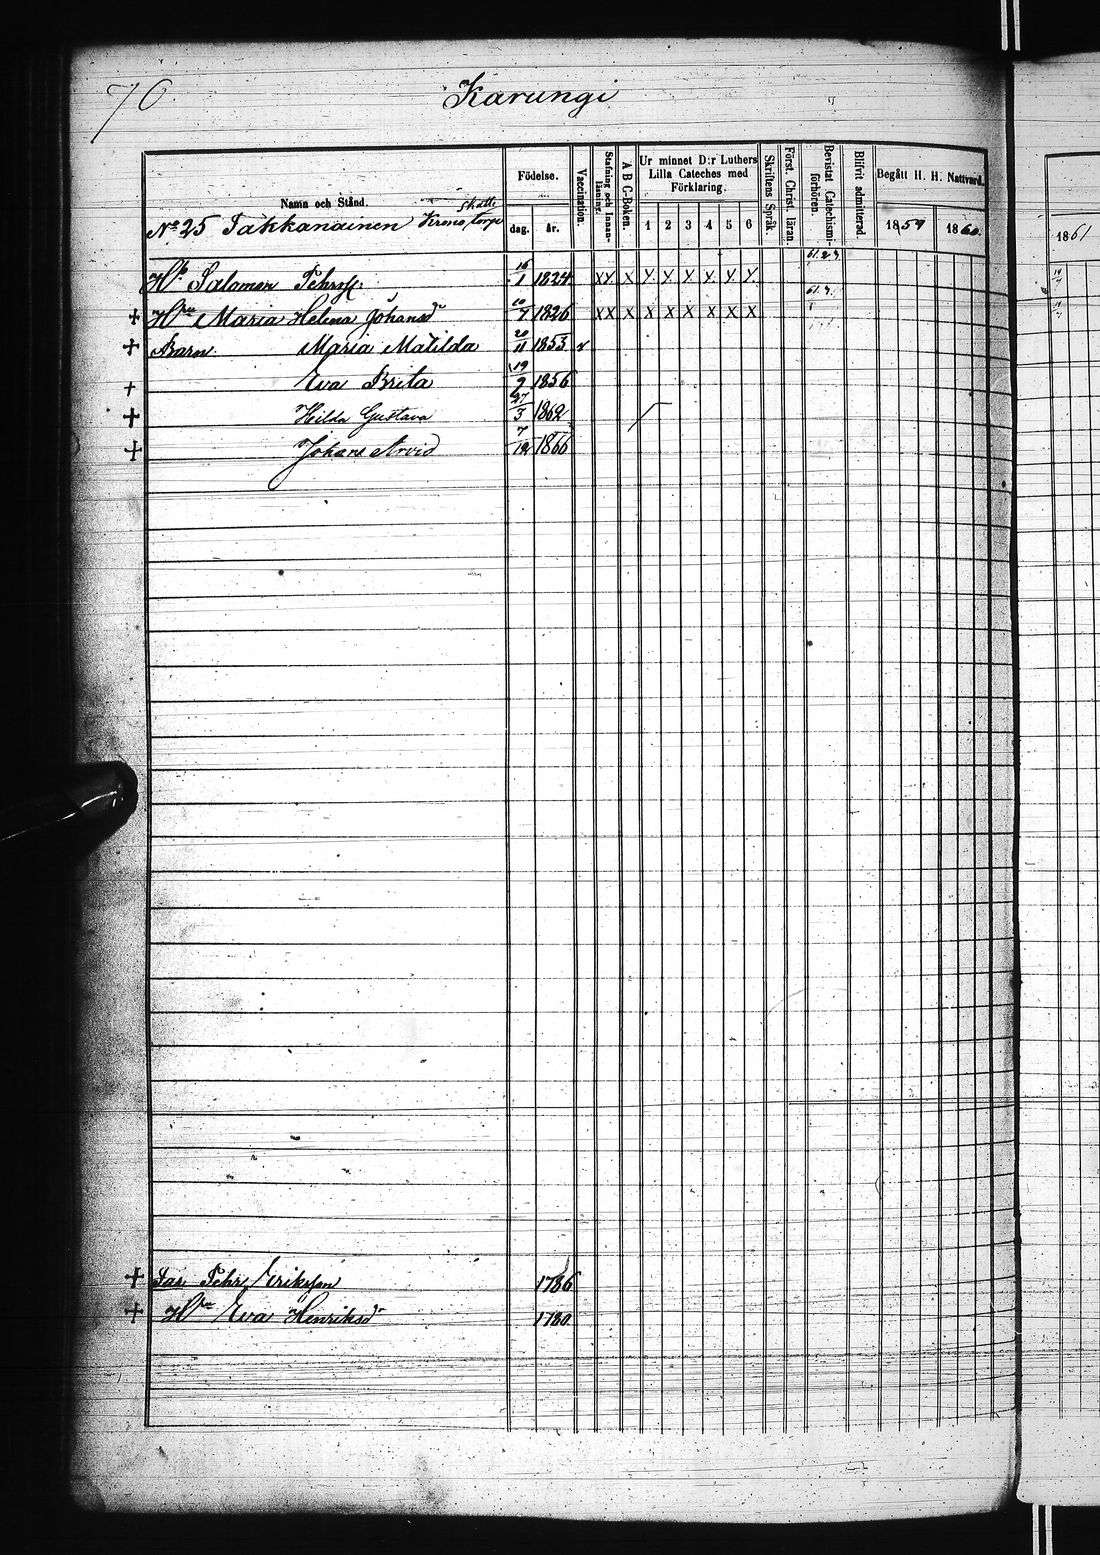 70
Karungi
Namn och Stånd. Födelse. Vaccination. Stafning och Innanläsning. A B C-Boken. Ur minnet D:r Luthers Lilla Cateches med Förklaring. Skriftens Språk Först. Christ. läran Bevistat Catechismiförhören. Blifvit admitterad. Begått H. H. Nattvard.
No 25 Takkanainen Krono skatte torp dag. år. 1 2 3 4 5 6 1859 1860
61.2.3
Hb. Salomon Pehrss. 16/1 1824 XX X X X X X X X
61.3.
+ Hru Maria Helena Johansdr 10/7 1826 XX X X X X X X X
+ Barn. Maria Matilda 20/11 1853 v
+ Eva Brita 19/9 1856
+ Hilda Gustava 27/3 1862
+ Johan Arvid 7/12 1866
+ Far Pehr Eriksson 1786
+ Hru Eva Henriksdr 1780
1861